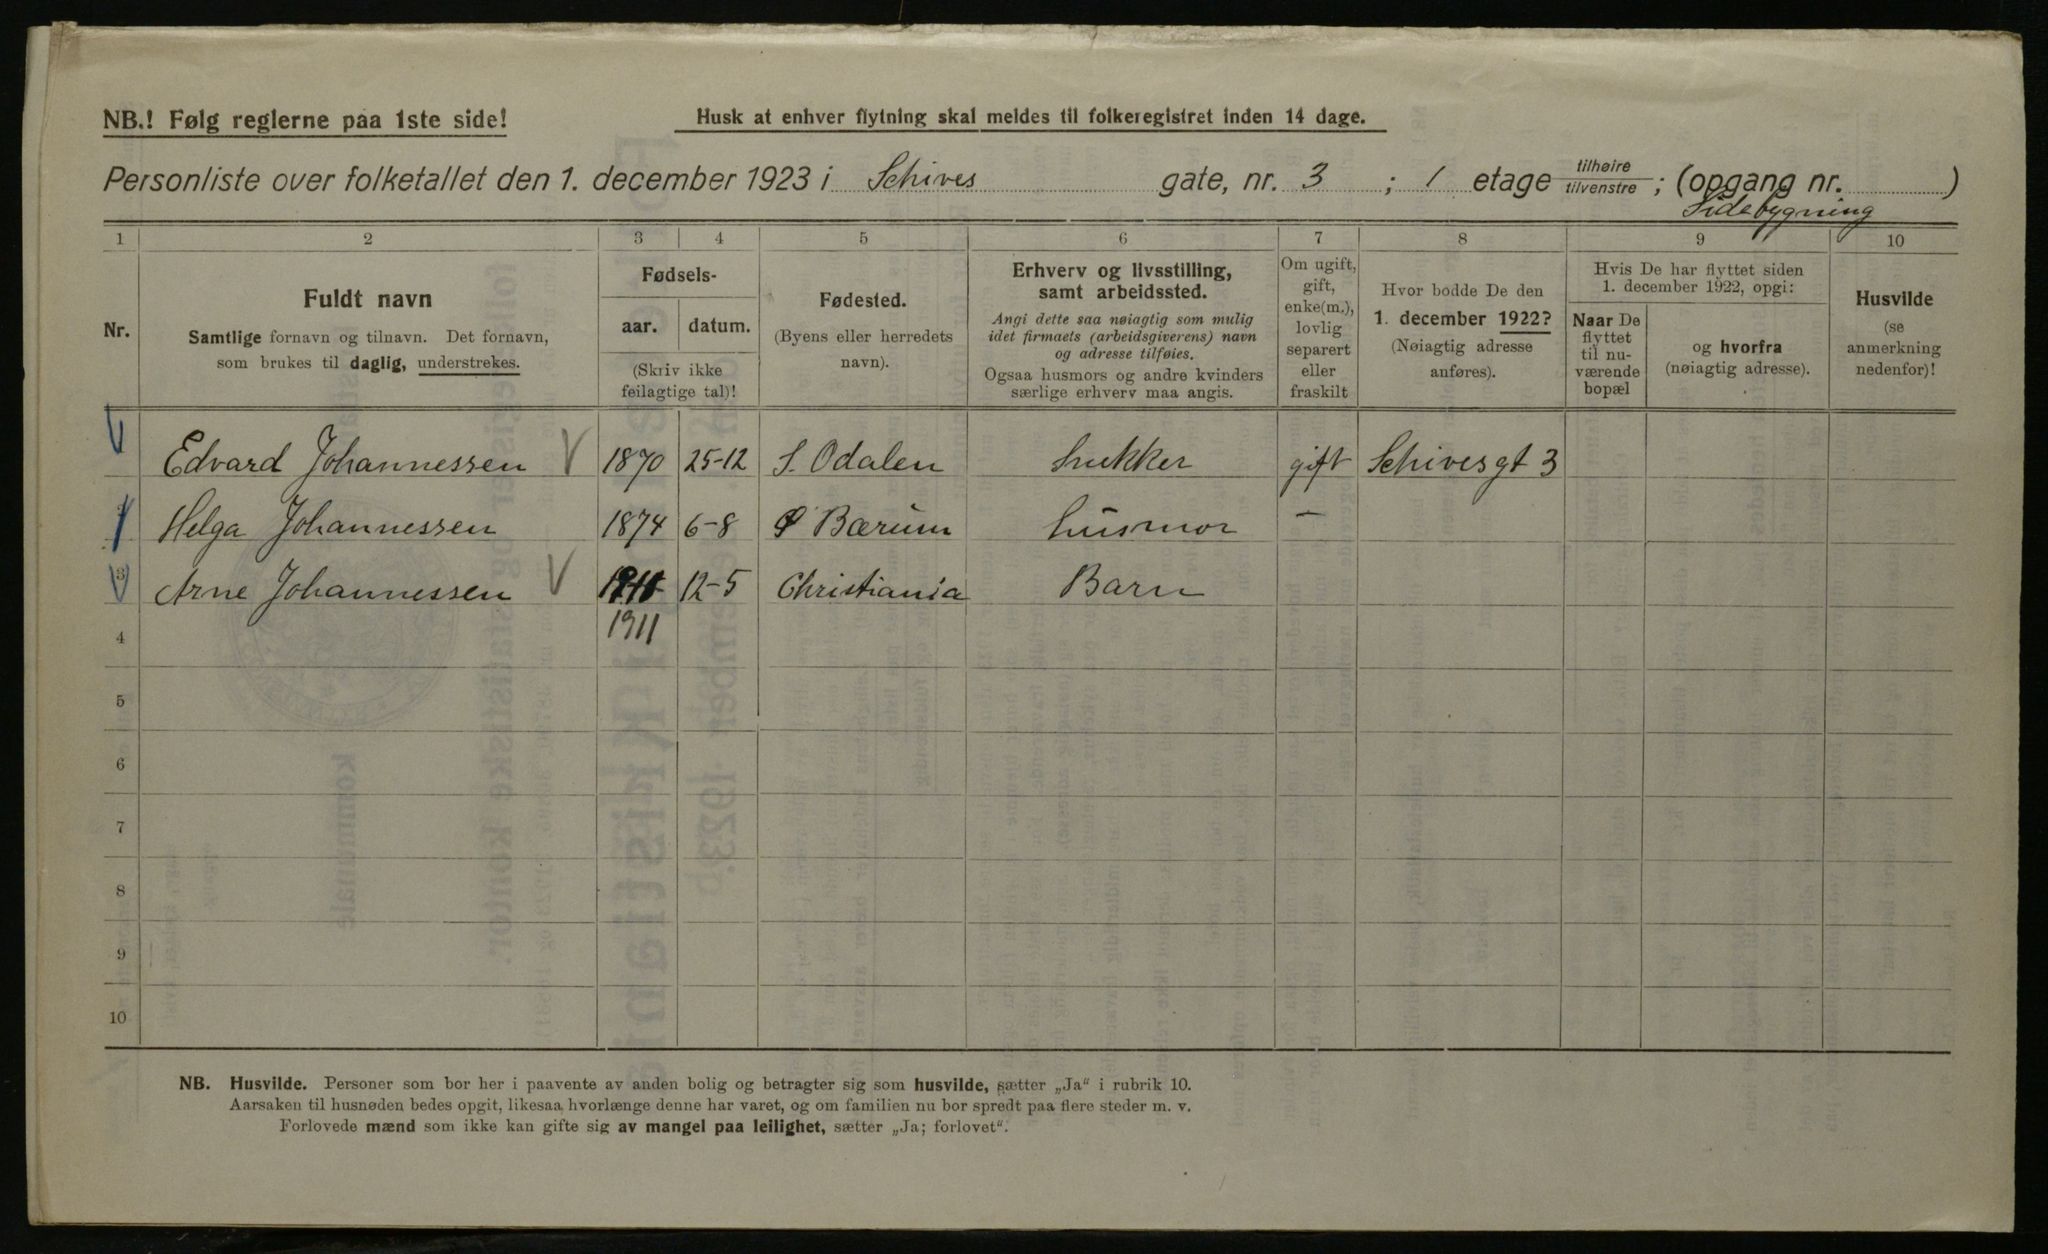 NB.! Følg reglerne paa 1ste side!
Husk at enhver flytning skal meldes til folkeregistret inden 14 dage.
Personliste over folketallet den 1. december 1923 i Schives gate, nr. 3 ; 1 etage tilhøire tilvenstre ; (opgang nr. )
Sidebygning
1 2 3 4 5 6 7 8 9 10
Nr.
Fuldt navn
Samtlige fornavn og tilnavn. Det fornavn,
som brukes til daglig, understrekes.
Fødsels-
aar. datum.
(Skriv ikke
feilagtige tal)!
Fødested.
(Byens eller herredets
navn).
Erhverv og livsstilling,
samt arbeidssted.
Angi dette saa nøiagtig som mulig
idet firmaets (arbeidsgiverens) navn
og adresse tilføies.
Ogsaa husmors og andre kvinders
særlige erhverv maa angis.
Om ugift,
gift,
enke(m.),
lovlig
separert
eller
fraskilt
Hvor bodde De den
1. december 1922?
(Nøiagtig adresse
anføres).
Hvis De har flyttet siden
1. december 1922, opgi:
Naar De
flyttet
til nu-
værende
bopæl
og hvorfra
(nøiagtig adresse).
Husvilde
(se
anmerkning
nedenfor)!
Edvard Johannessen 1870 25-12 S. Odalen Snekker gift Schivesgt 3
Helga Johannessen 1874 6-8 Bærum husmor —
3 Arne Johannessen 12-5 Christiania Barn
4 1911
5
6
7
8
9
10
NB. Husvilde. Personer som bor her i paavente av anden bolig og betragter sig som husvilde, sætter „Ja" i rubrik 10.
Aarsaken til husnøden bedes opgit, likesaa hvorlænge denne har varet, og om familien nu bor spredt paa flere steder m. v.
Forlovede mænd som ikke kan gifte sig av mangel paa leilighet, sætter „Ja; forlovet".